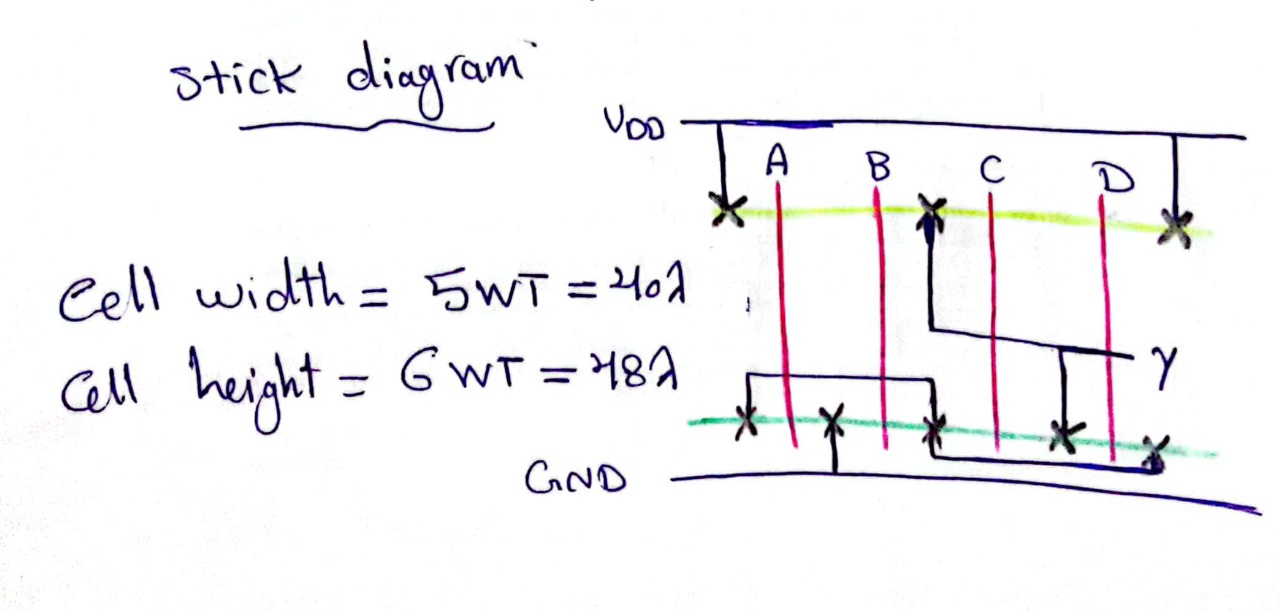 Stick diagram
VDD
A B C D
Cell width = 5WT = 40λ
Cell height = 6WT = 48λ
Y
GND